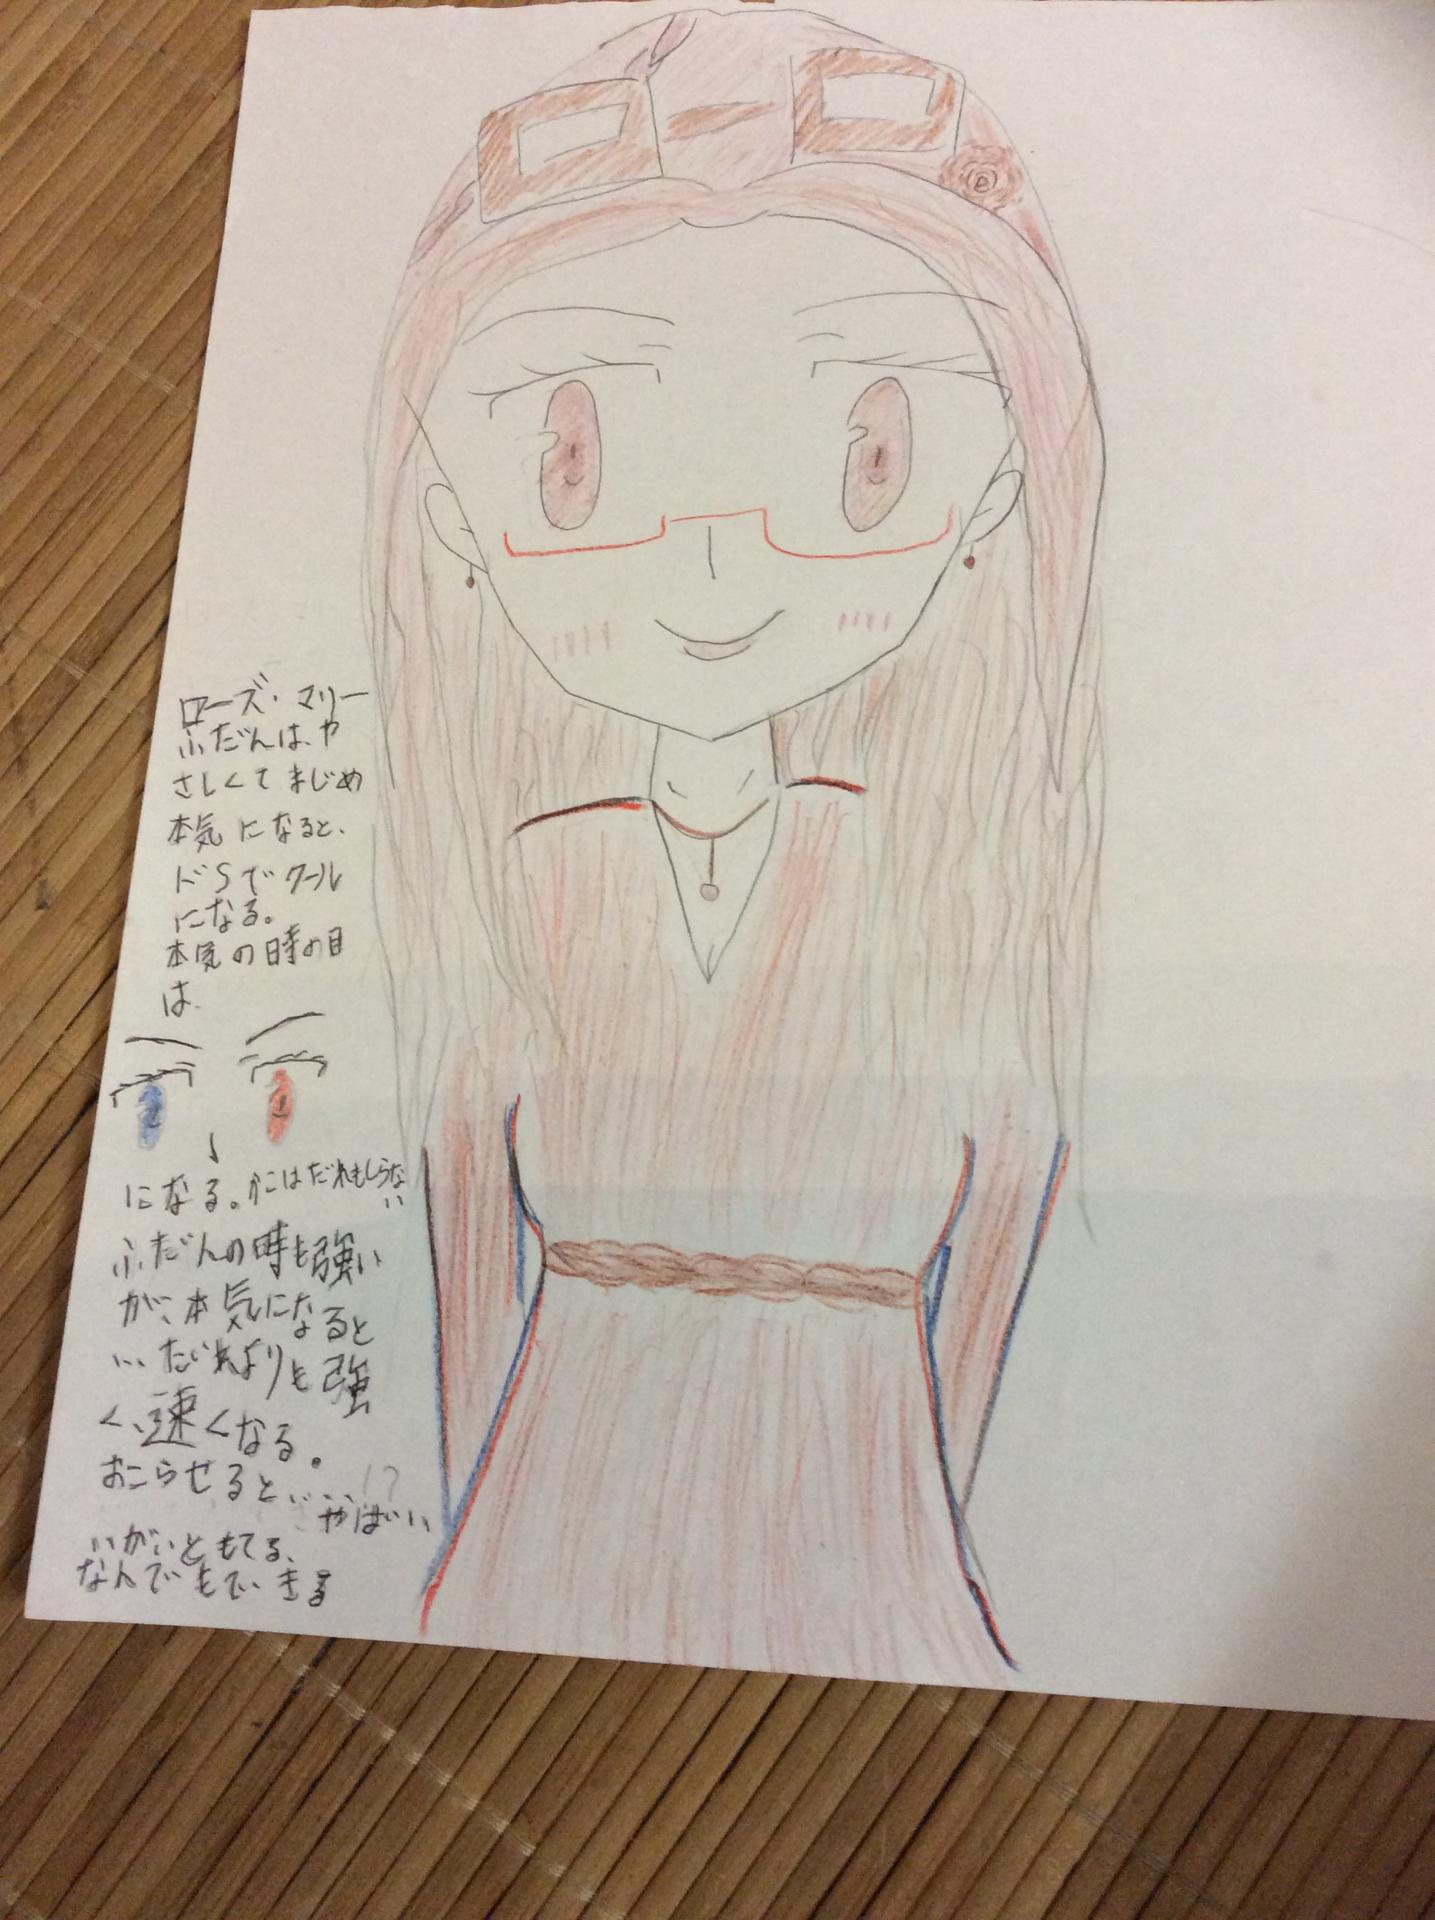 ローズ・マリー
ふだんは、や
さしくてまじめ
本気になると、
ドSでクール
になる。
本気の時の目
は、
になる。かこはだれもしらな
い
ふだんの時も強い
が、本気になると
…だれよりも強
く、速くなる。
おこらせると……!?
やばい
いがいともてる、
なんでもできる